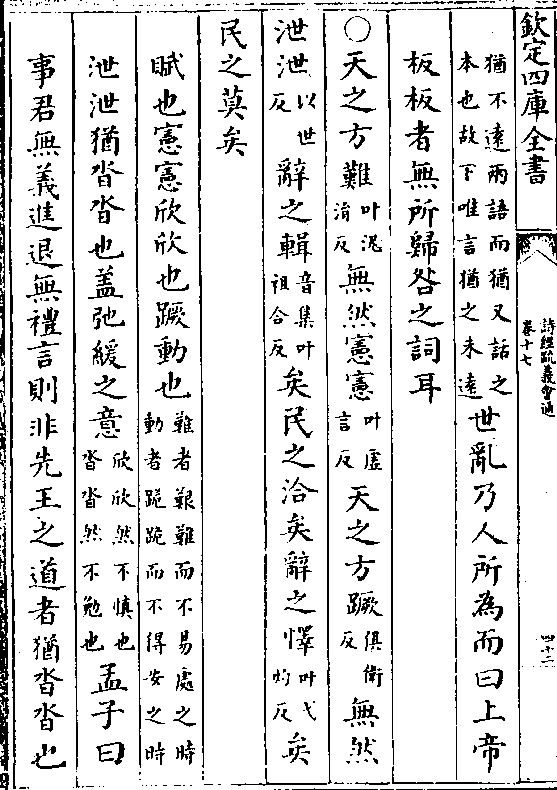 欽定四庫全書
詩經疏義會通
卷十七
四十二
猶不遠兩語而猶又話之
本也故下唯言猶之未遠世亂乃人所為而曰上帝
板板者無所歸咎之詞耳
○天之方難叶泥涓反無然憲憲叶虛言反天之方蹶俱衛反無然
泄泄以世反辭之輯音集叶祖合反矣民之洽矣辭之懌叶弋灼反矣
民之莫矣
賦也憲憲欣欣也蹶動也難者艱難而不易處之時動者跪跪而不得安之時
泄泄猶沓沓也盖弛緩之意欣欣然不慎也沓沓然不勉也孟子曰
事君無義進退無禮言則非先王之道者猶沓沓也